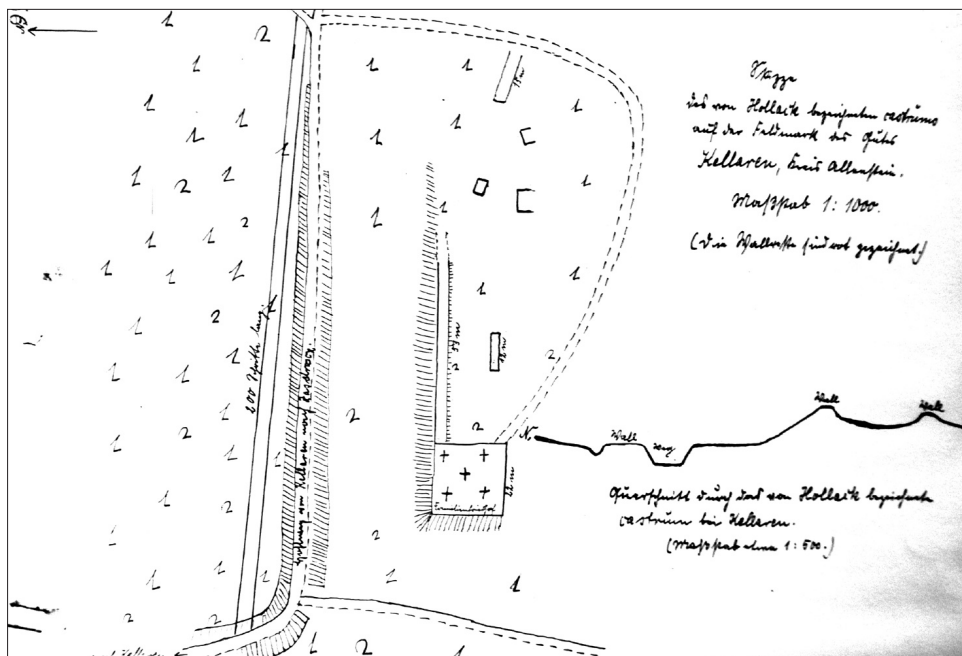 Skizze
des von Hollack bezeichneten castrums
auf der Feldmark des Gutes
Kellaren, Kreis Allenstein.
Maßstab 1:1000.
(Die Wallreste sind rot gezeichnet.)
N.
15 m
54 m
12 m
22 m
200 Schritte lang
von Kellaren nach
N.
Wall
Weg
Wall
Wall
Querschnitt durch das von Hollack bezeichnete
castrum bei Kellaren.
(Maßstab etwa 1:500.)